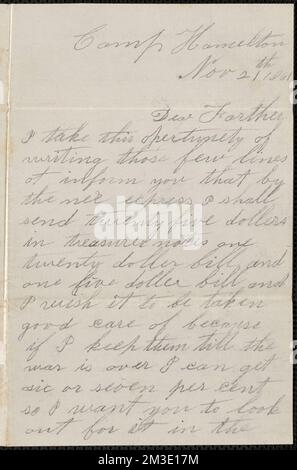 Camp Hamelton
Nov 21th 1861
Dear Farther
I take this opertunety of
writing those few lines
ot inform you that by
the nex express I shall
send twenty five dollers
in treasurer notes one
twenty doller bill and
one five doller bill and
I wish it to be taken
good care of because
if I keep them till the
war is over I can get
sic or seven per cent
so I want you to look
out for it in the
alamy
Image ID: 2M3E17M
www.alamy.com